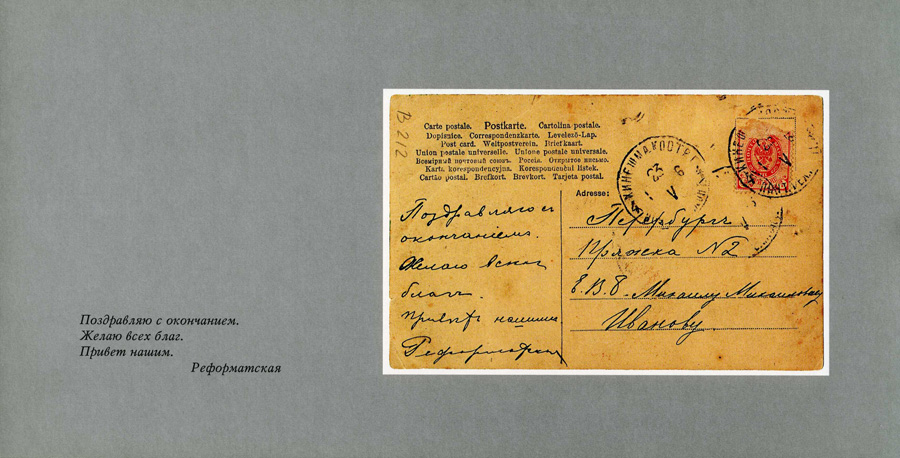 Поздравляю с окончанием.
Желаю всех благ.
Привет нашим.
Реформатская
В 212
Carte postale. Postkarte. Cartolina postale.
Dopisnice. Correspondenzkarte. Levelező-Lap.
Post card. Weltpostverein. Briefkaart.
Union postale universelle. Unione postale universale.
Всемірный почтовый союзъ. Россія. Открытое письмо.
Karta korespondencyjna. Korespondenční lístek.
Cartão postal. Brefkort. Brevkort. Tarjeta postal.
Adresse:
Поздравляю съ
окончаніемъ.
Желаю всѣхъ
благъ.
Привѣтъ нашимъ
Реформатская
Петербургъ
Пряжка N2
Е. В. Б. Михаилу Михайловичу
Иванову.
КИНЕШМА КОСТР.
23
V